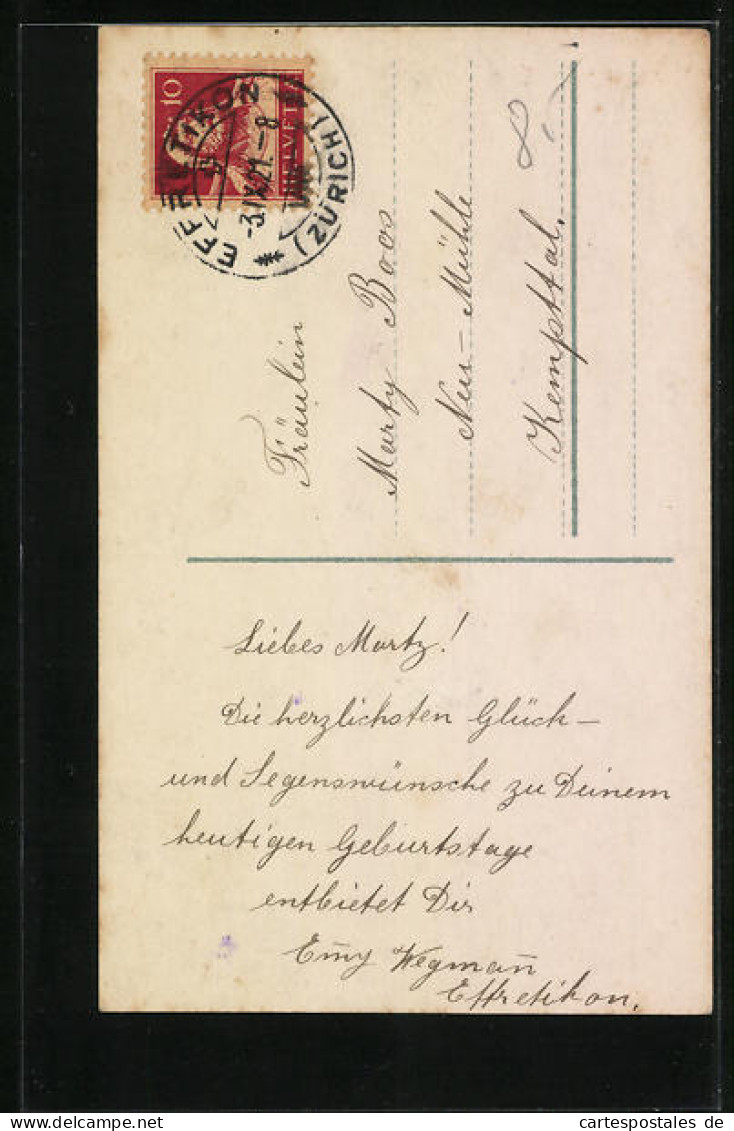 10
HELVETIA
EFFRETIKON
-3.IX.21.-8
(ZÜRICH)
Fräulein
Marty Boos
Neu-Mühle
Kempttal.
Liebes Marty!
Die herzlichsten Glück-
und Segenswünsche zu Deinem
heutigen Geburtstage
entbietet Dir
Em̄y Wegman̄
Effretikon.
cartespostales de